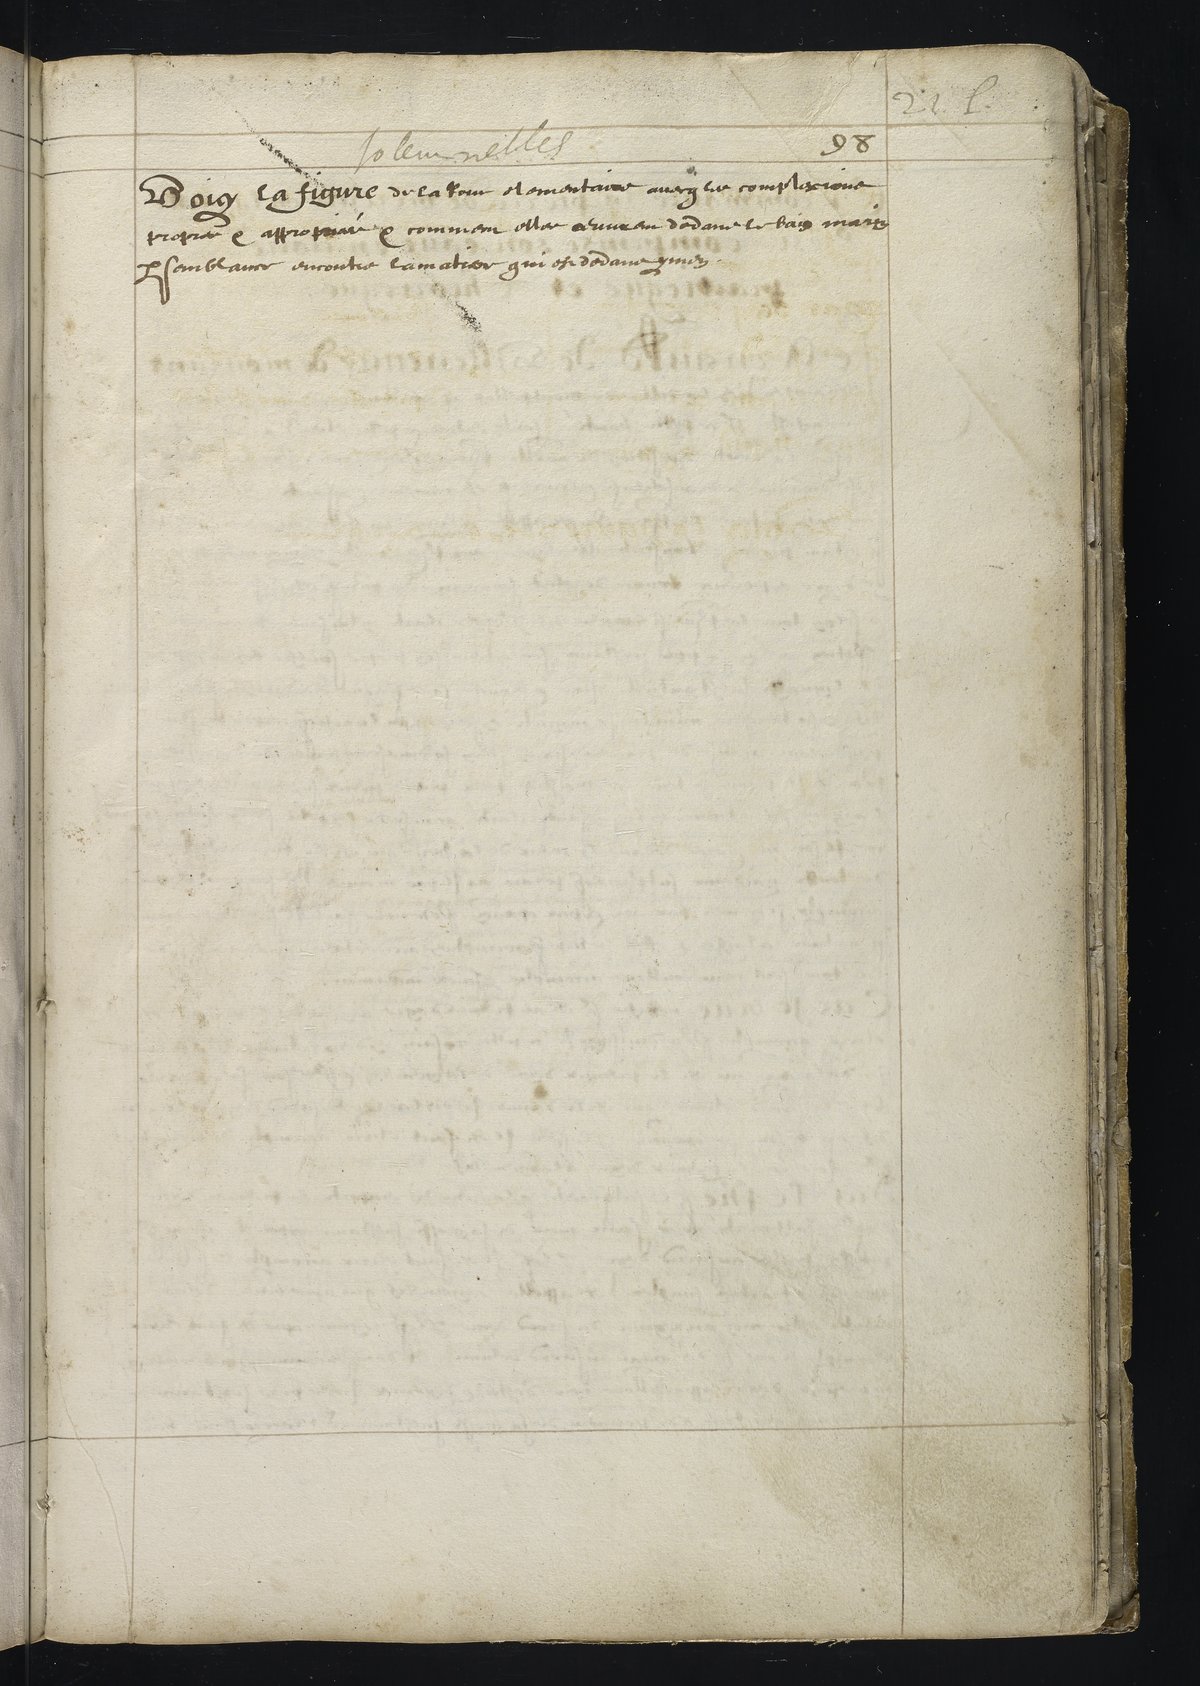 22 l.
solemnelles
98
Voicy la figure de la Roue elementaire avecq les complexions
propres & appropriées & comment elles œuvrent dedans le baing marie
p semblance encontre la matiere qui est dedans